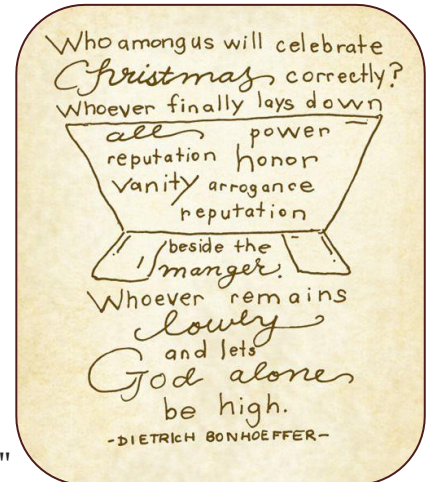 Who among us will celebrate
Christmas correctly?
Whoever finally lays down
all power
reputation honor
vanity arrogance
reputation
beside the
manger.
Whoever remains
lowly
and lets
God alone
be high.
-DIETRICH BONHOEFFER-
"